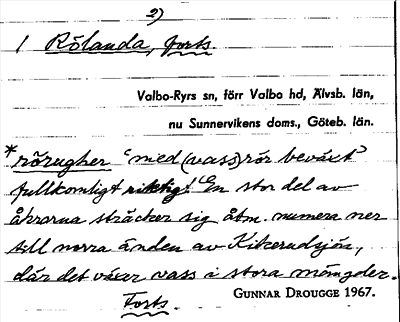 2)
1 Rölanda, forts.
Valbo-Ryrs sn, förr Valbo hd, Älvsb. län,
nu Sunnervikens doms., Göteb. län.
*rörugher "med (vass)rör beväxt"
fullkomligt riktig! En stor del av
åkrarna sträcker sig åtm. numera ner
till norra änden av Kikerudsjön,
där det växer vass i stora mängder.
Forts. GUNNAR DROUGGE 1967.